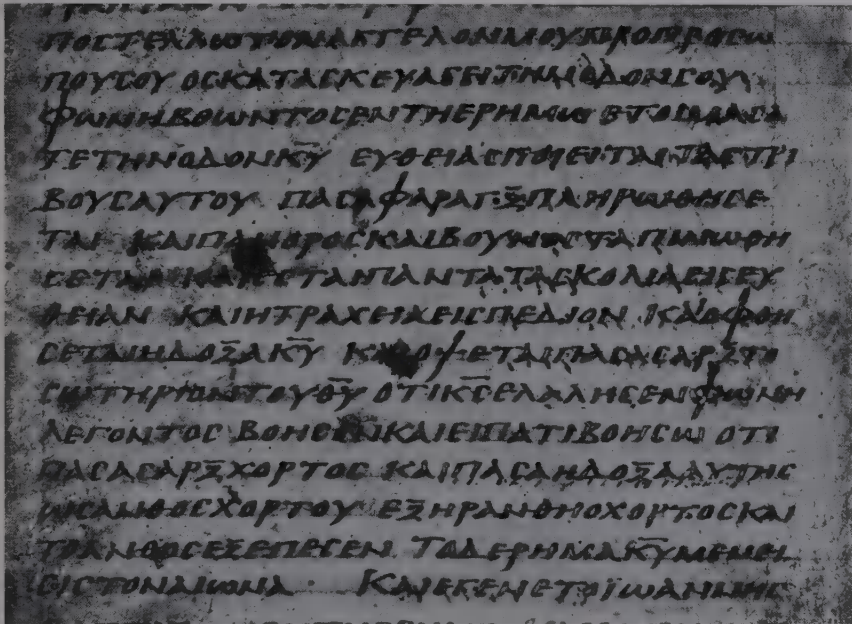 ΠΟϹΤΕΛΛΩΤΟΝΑΓΓΕΛΟΝΜΟΥΠΡΟΠΡΟϹΩ
ΠΟΥϹΟΥ ΟϹΚΑΤΑϹΚΕΥΑϹΕΙΤΗΝΟΔΟΝϹΟΥ
ΦΩΝΗΒΟΩΝΤΟϹΕΝΤΗΕΡΗΜΩ ΕΤΟΙΜΑϹΑ
ΤΕΤΗΝΟΔΟΝΚ̅Υ̅ ΕΥΘΕΙΑϹΠΟΙΕΙΤΑΙΤΑϹΤΡΙ
ΒΟΥϹΑΥΤΟΥ ΠΑϹΑΦΑΡΑΓΞΠΛΗΡΩΘΗϹΕ
ΤΑΙ ΚΑΙΠΑΝΟΡΟϹΚΑΙΒΟΥΝΟϹΤΑΠΙΝΩΘΗ
ϹΕΤΑΙ ΚΑΙΕϹΤΑΙΠΑΝΤΑΤΑϹΚΟΛΙΑΕΙϹΕΥ
ΘΕΙΑΝ ΚΑΙΗΤΡΑΧΕΙΑΕΙϹΠΕΔΙΟΝ ΚΑΙΟΦΘΗ
ϹΕΤΑΙΗΔΟΞΑΚ̅Υ̅ ΚΑΙΟΨΕΤΑΙΠΑϹΑϹΑΡΞΤΟ
ϹΩΤΗΡΙΟΝΤΟΥΘ̅Υ̅ ΟΤΙΚ̅Ϲ̅ΕΛΑΛΗϹΕΝ ΦΩΝΗ
ΛΕΓΟΝΤΟϹ ΒΟΗϹΟΝΚΑΙΕΙΠΑΤΙΒΟΗϹΩ ΟΤΙ
ΠΑϹΑϹΑΡΞΧΟΡΤΟϹ ΚΑΙΠΑϹΑΗΔΟΞΑΑΥΤΗϹ
ΩϹΑΝΘΟϹΧΟΡΤΟΥ ΕΞΗΡΑΝΘΗΟΧΟΡΤΟϹΚΑΙ
ΤΟΑΝΘΟϹΕΞΕΠΕϹΕΝ ΤΟΔΕΡΗΜΑΚ̅Υ̅ΜΕΝΕΙ
ΕΙϹΤΟΝΑΙΩΝΑ · ΚΑΙΕΓΕΝΕΤΟΪΩΑΝΝΗϹ